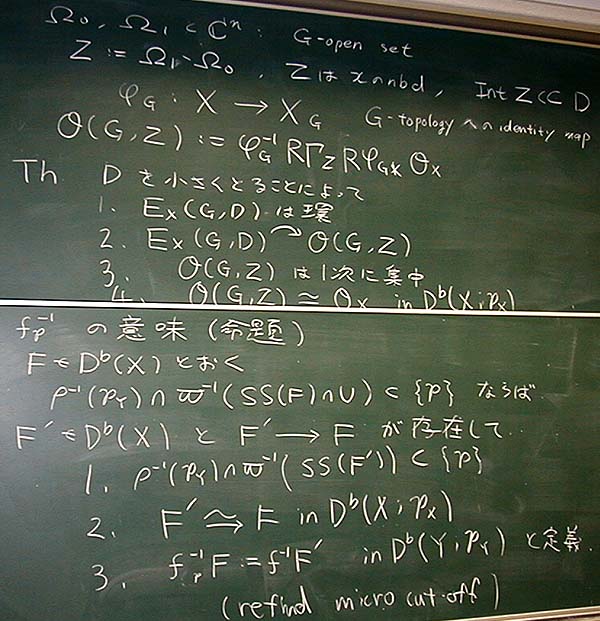 Ω₀, Ω₁ ⊂ ℂⁿ : G-open set
Z := Ω₁ \ Ω₀ , Z は x の nbd , Int Z ⊂⊂ D
φ_G : X → X_G G-topology への identity map
O(G,Z) := φ_G⁻¹ RΓ_Z Rφ_G* O_X
Th D を小さくとることによって
1. E_X(G,D) は環
2. E_X(G,D) ↷ O(G,Z)
3. O(G,Z) は1次に集中
4. O(G,Z) ≃ O_X in Dᵇ(X;p_X)
f_p⁻¹ の意味 (命題)
F ∈ Dᵇ(X) とおく
ρ⁻¹(p_Y) ∩ ϖ⁻¹(SS(F) ∩ U) ⊂ {p} ならば
F′ ∈ Dᵇ(X) と F′ → F が存在して
1. ρ⁻¹(p_Y) ∩ ϖ⁻¹(SS(F′)) ⊂ {p}
2. F′ ≃ F in Dᵇ(X;p_X)
3. f_p⁻¹F := f⁻¹F′ in Dᵇ(Y;p_Y) と定義.
(refind micro cut-off)